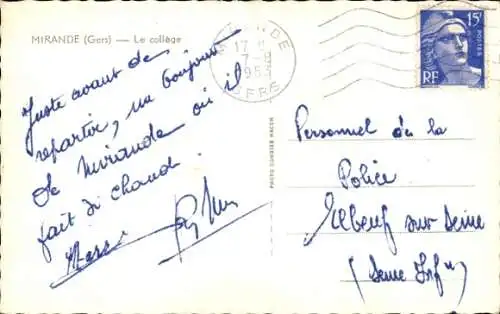 MIRANDE (Gers) — Le collège
Juste avant de
repartir, un bonjour
de Mirande où il
fait si chaud.
Personnel de la
Police
Elbeuf sur Seine
(Seine Infre)
15F
POSTES
RF
17 -
7 - 8
195
GERS
PHOTO COMBIER MACON